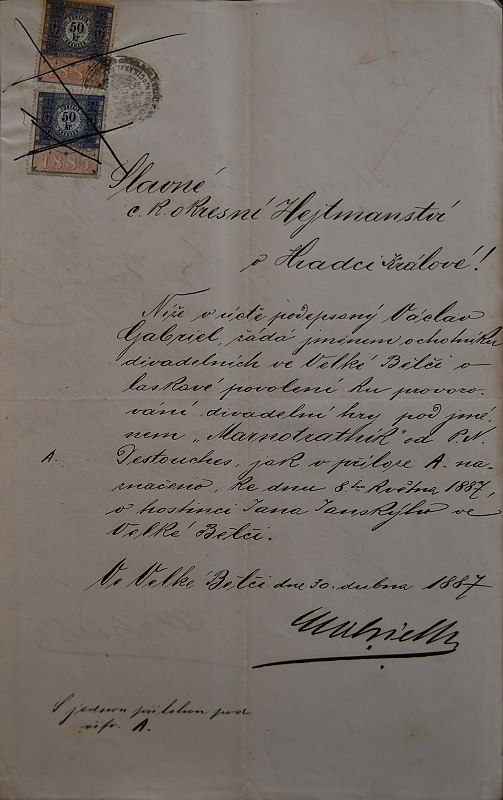 50
kr
188
50
kr
1885
Slavné
c. k. okresní Hejtmanství
v Hradci Králové!
Níže v úctě podepsaný Václav
Gabriel, žádá jménem ochotníku
divadelních ve Velké Bělči o
laskavé povolení ku provozo-
vání divadelní hry pod jmé-
nem „Marnotratník" od P. N.
A. Destouches, jak v příloze A. na-
značeno, ke dnu 8. května 1887,
v hostinci Jana Janskýho ve
Velké Bělči.
Ve Velké Bělči dne 30. dubna 1887
S jednou přílohou pod
cifr. A.